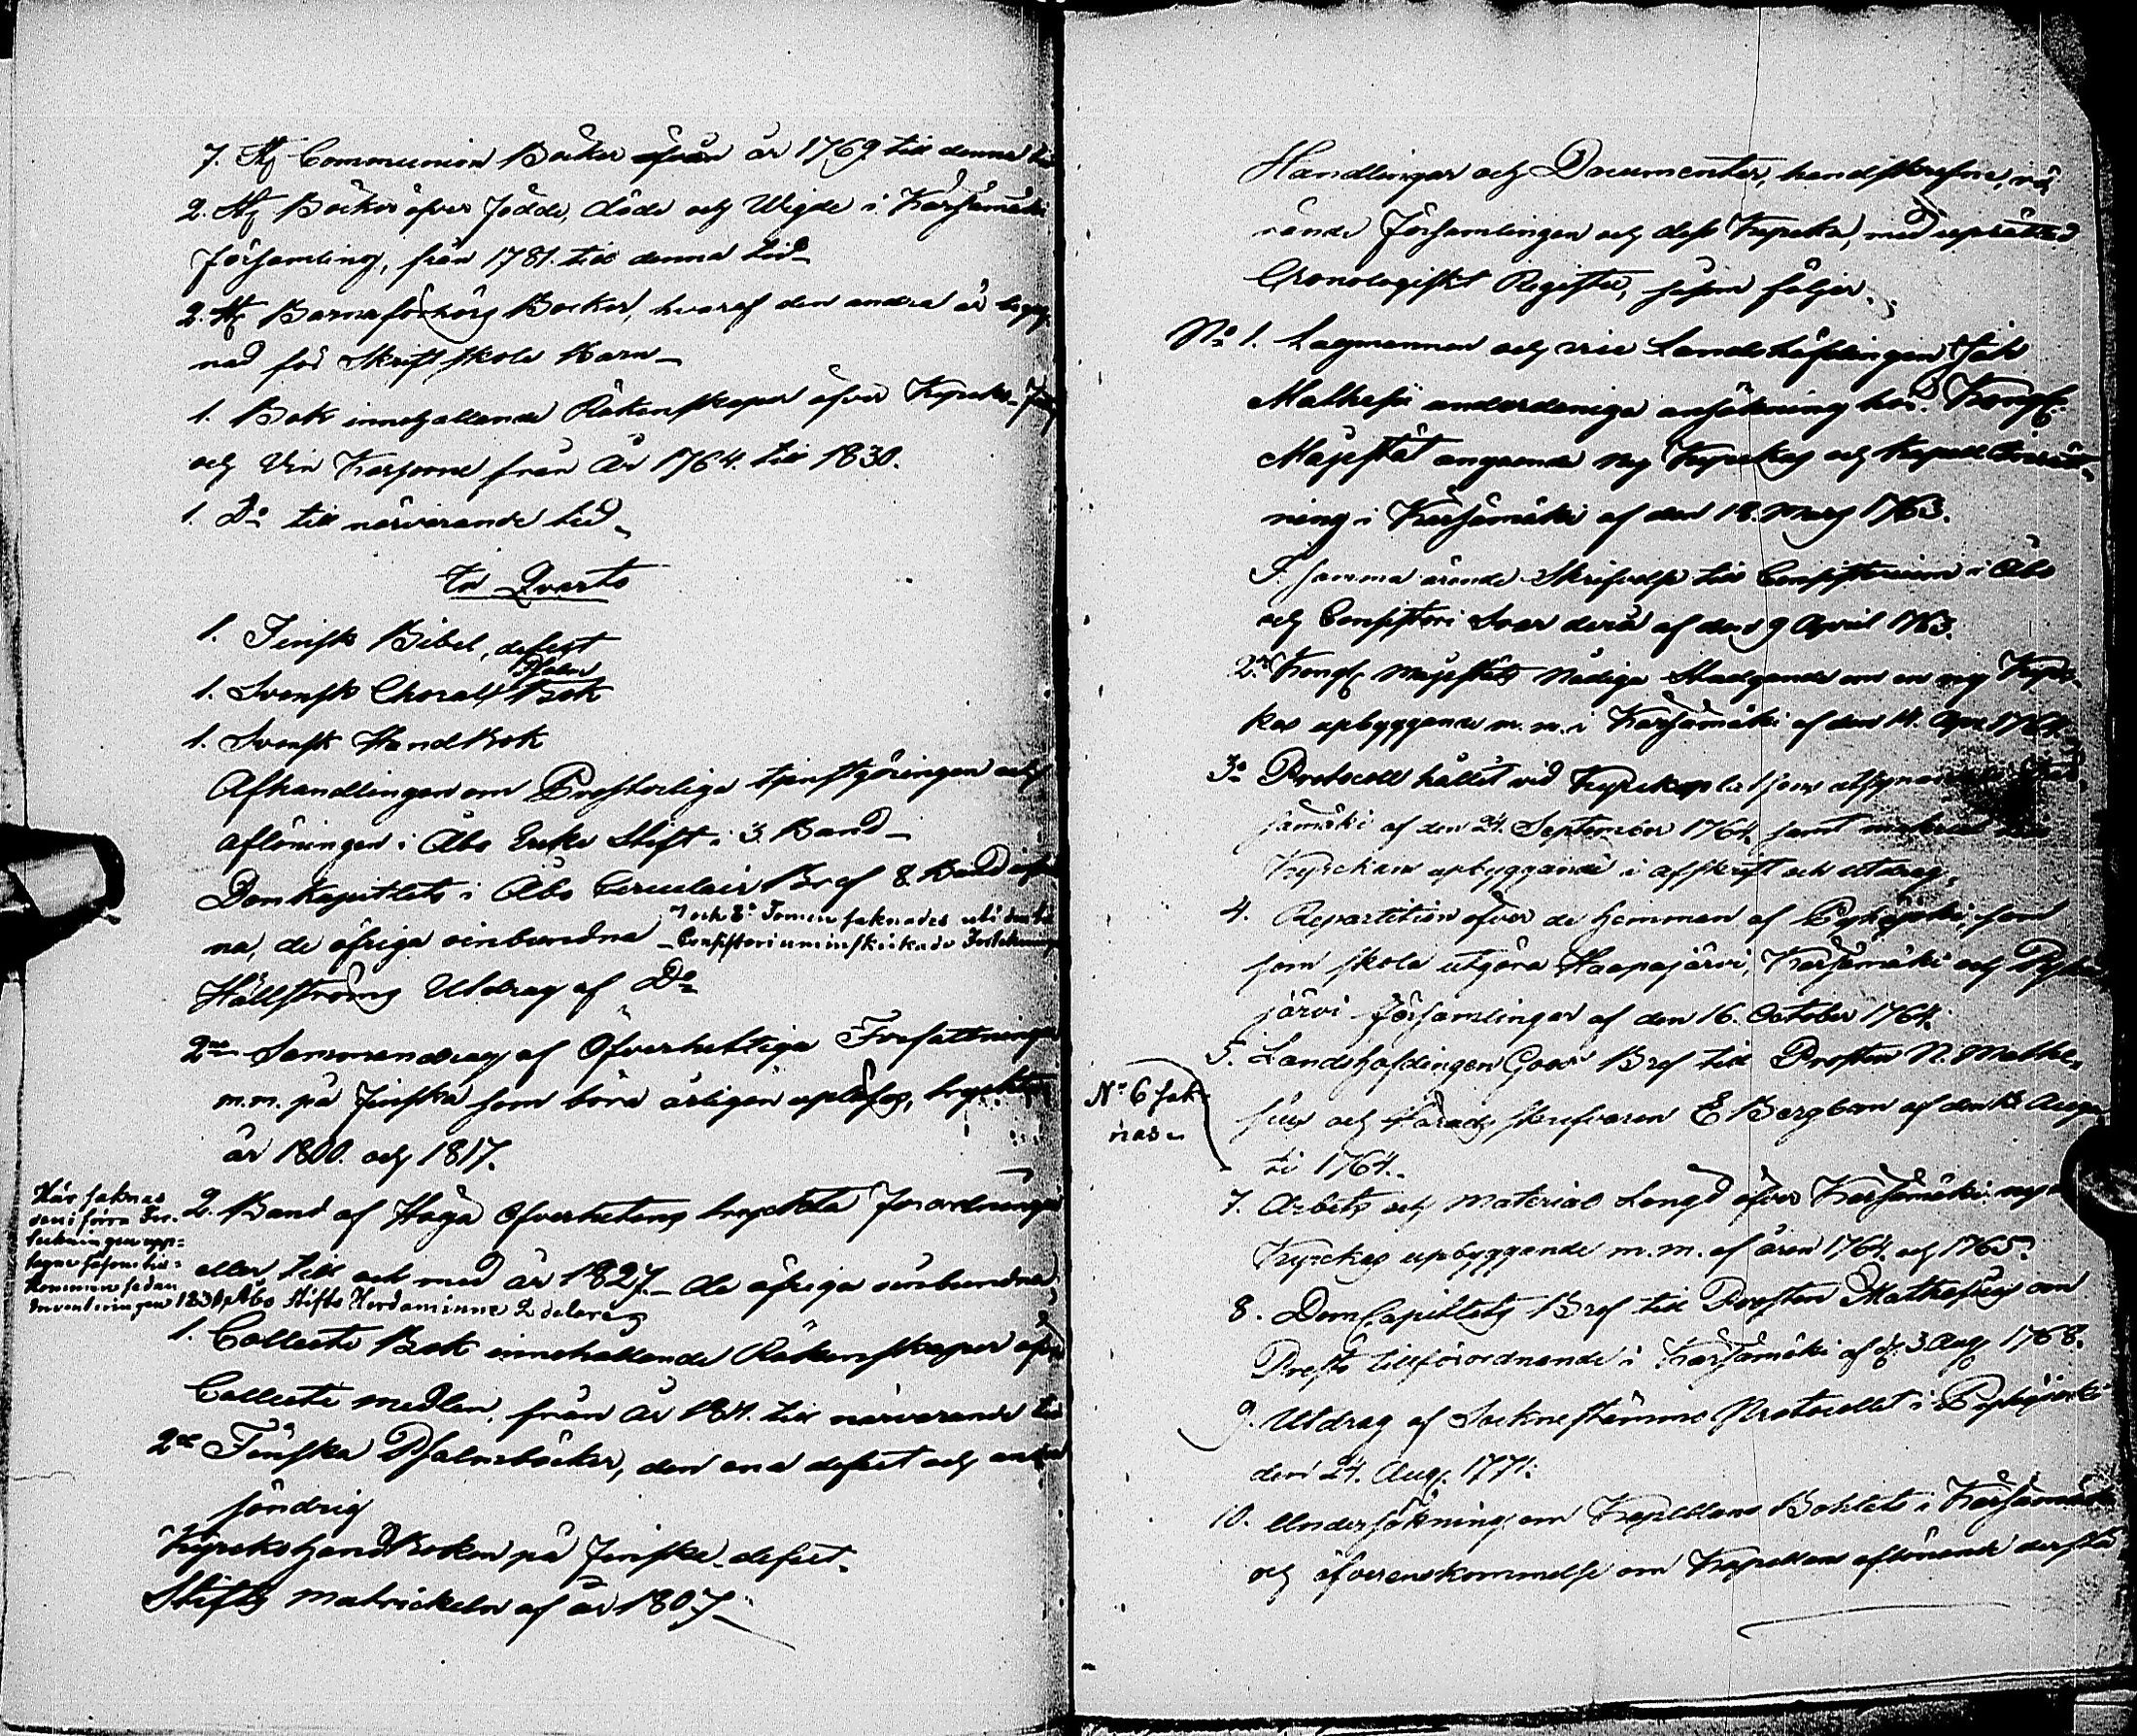 7. St Communion Böcker ifrån år 1769 till denna
2. St Böcker öfver födde, döde och Wigde i Kärsämäki
församling, från 1781. till denna tid_
2. St Barnaförhörs Böcker, hvaraf den andra är begag-
nad för Skriftskole Barn_
1. Bok innehallande Räkenskaper öfver Kyrcko-
och Vin Kassorne från År 1764. till 1830.
1. Do till närvarande tid_
In Quarto
1. Finsk Bibel, defect
1. Svensk Choral Psalm Bok
1. Svensk HandBok
Afhandlingen om Presterliga tjenstgöringen och
aflöningen i Åbo Ercke Stift i 3. Band_
Domkapitlets i Åbo Circulair Bref 8 Band
na, de öfriga oinbundna 7 och 8de Tomen saknades uti den till
Consistorium inskickade Förtekning
Hällströms Utdrag af Do
2ne Sammandrag af Öfverhetliga Författningar
m.m. på Finska som böra årligen upläsas, tryckta
år 1800. och 1817.
Här saknas
den i förra För-
teckningen upp-
tagne såsom till-
kommen sedan
Inventeringen 1830 Åbo Stifts Herdaminne 2 delar
2. Band af Höga Öfverhetens tryckta Förordningar
eller till och med år 1827._ de öfriga oinbundna
1. Collecte Bok innehallande Räkenskaper öfver
Collecte medlen, från år 1811. till närvarande tid
2ne Finska Psalmböcker, den ena defect och andra
söndrig
KyrckohandBoken på Finska defect_
Stifts matrickeln af år 1807_
Handlingar och Documenter, handskrefne, rö-
rande Församlingen och dess Kyrcka, med uprättad
Chronologiskt Register, såsom följer.
No 1. Lagmannen och vice Landshöfdingen Joh
Mathesii underdåniga ansökning hos Kongl.
Majestät angående ny Kyrckas och Kapell Inrätt-
ning i Kärsämäki af den 18. Mars 1763.
I samma ärende Skrifvelse till Consistorium i Åbo
och Consistorii Svar derå af den 9 April 1763.
2. Kongl Majestäts Nådiga Stadgande om en ny Kyrc-
kas upbyggande m.m. i Kärsämäki af den 14. Apr 1764.
3o Protocoll hållet vid Kyrckoplatsens utsynande i Kär-
sämäki af den 24. September 1764. samt
Kyrckans upbyggande i afskrift och utdrag.
4. Repartition öfver de hemman af Pyhäjoki, som
som skola utgöra Haapajärvi, Kärsämäki och Pyhä-
järvi Församlingar af den 16. October 1764.
No 6 sak-
nas_
5. Landshöfdingen Bref till Prosten N. Mathe-
sius och Härads skrifvaren E Bergbom af den 13 Augu-
ti 1764._
7. Arbets och Material Längd öfver Kärsämäki nya
Kyrckas upbyggande m.m. af åren 1764. och 1765.
8. DomCapitlets Bref till Prosten Mathesius om
Prests tillförordnande i Kärsämäki af d. 3 Aug 1768.
9. Utdrag af Sockne stämmo Protocollet i Pyhäjoki
den 24. Aug. 1771.
10. Undersökning om Kapellans Bohlet i Kärsämäki
och öfverenskommelse om Kapellans aflönande derstä